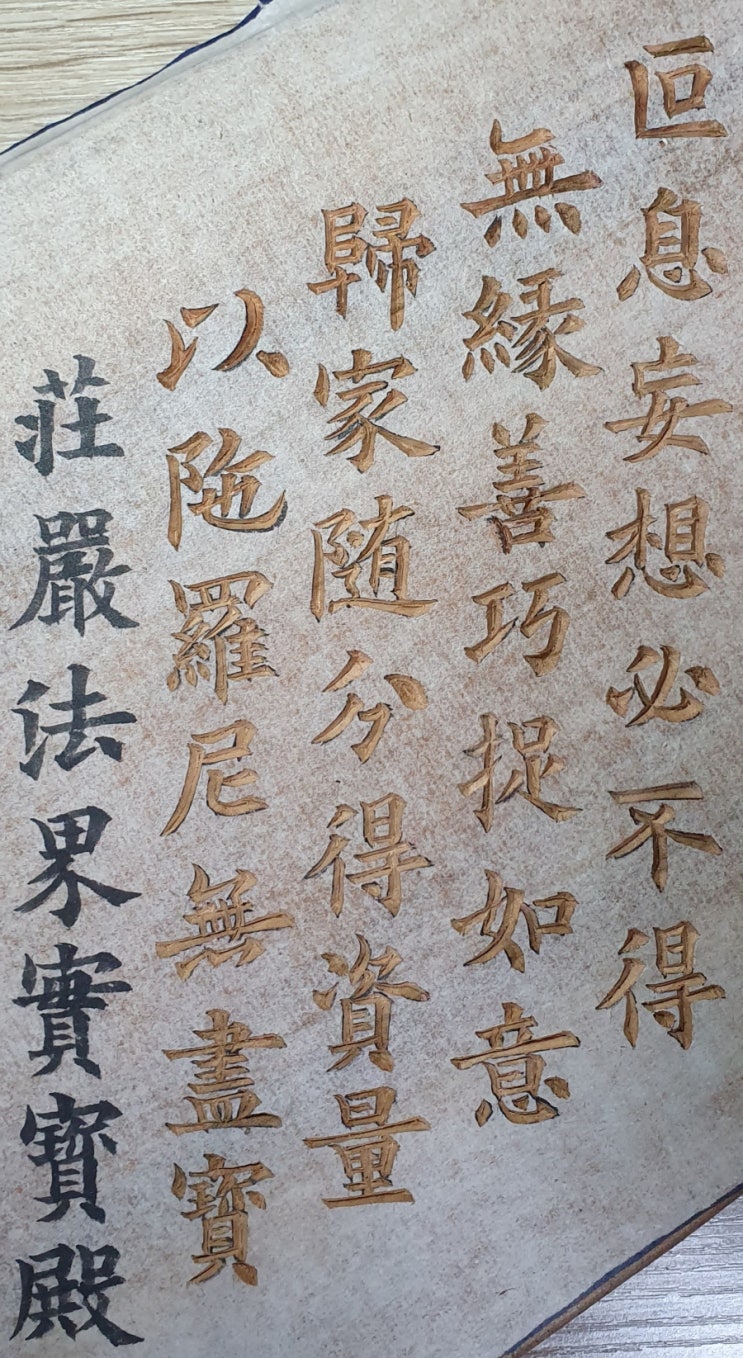 叵息妄想必不得
無縁善巧捉如意
歸家随分得資量
以陁羅尼無盡寳
荘嚴法界實寳殿